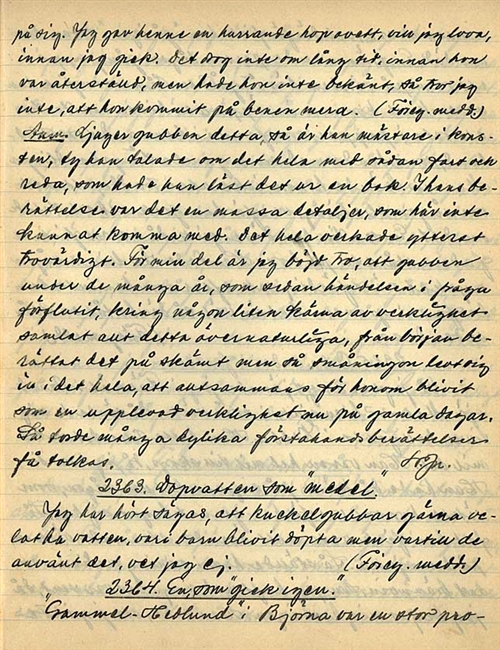 på sig. Jag gav henne en hurrande hop ovett, vill jag lova,
innan jag gick. Det dog inte om lång tid, innan hon
var återställd, men hade hon inte bekänt, så tror jag
inte, att hon kommit på benen mera. (Föreg. medd.)
Anm. Ljuger gubben detta, så är han mästare i kons-
ten, ty han talade om det hela med sådan fart och
reda, som hade han läst det ur en bok. I hans be-
rättelse var det en massa detaljer, som här inte
kunnat komma med. Det hela verkade ytterst
trovärdigt. För min del är jag böjd tro, att gubben
under de många år, som sedan händelsen i fråga
förflutit, kring någon liten kärna av verklighet
samlat allt detta övernaturliga, från början be-
rättat det på skämt men så småningom levt sig
in i det hela, att altsammans för honom blivit
som en upplevad verklighet nu på gamla dagar.
Så torde många dylika förstahandsberättelser
få tolkas.
2363. Dopvatten som "medel".
Jag har hört sägas, att kuckelgubbar gärna ve-
lat ha vatten, vari barn blivit döpta men vartill de
använt det, vet jag ej. (Föreg. medd.)
2364. En, som "gick igen."
"Gammel-Hedlund" i Björna var en stor pro-